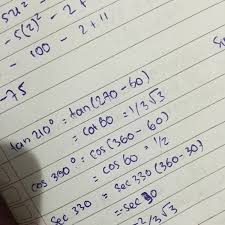 - 5(2)² - 2 +
- 100 - 2 + 11
-75
tan 210° = tan(270 - 60)
= cot 60 = 1/3√3
cos 300° = cos(360 - 60)
= cos 60 = 1/2
sec 330 = sec 330 (360 - 30)
= sec 30
2/3√3